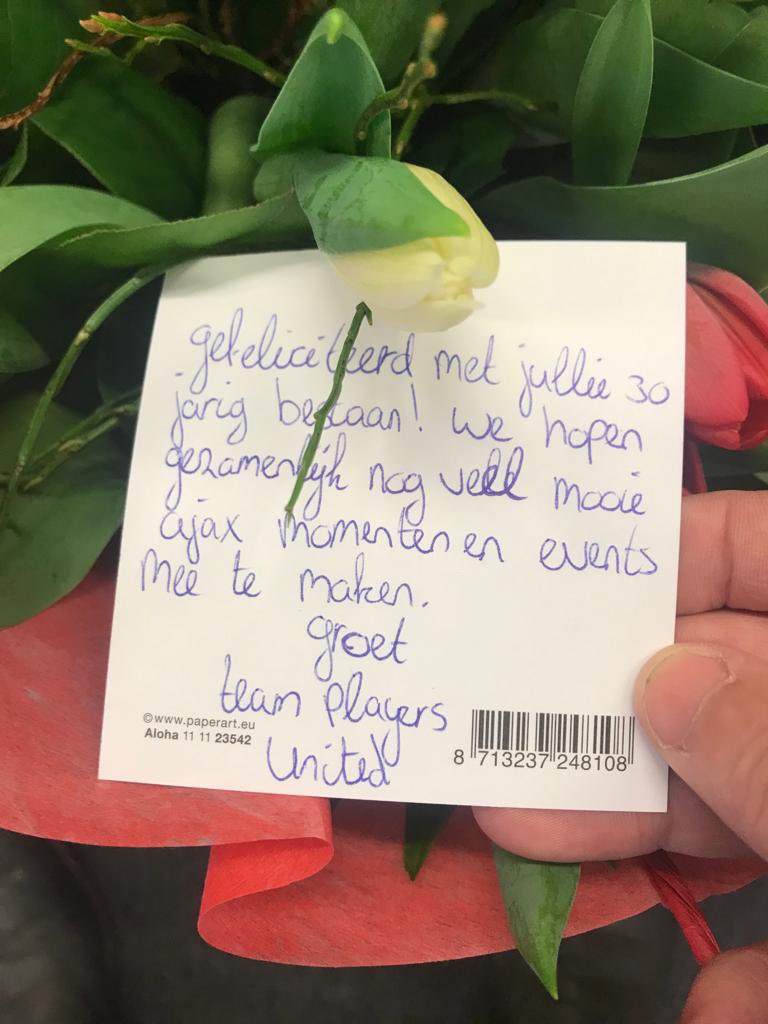 gefeliciteerd met jullie 30
jarig bestaan! we hopen
gezamenlijk nog veel mooie
ajax momenten en events
mee te maken.
groet
team Players
United
©www.paperart.eu
Aloha 11 11 23542
8 713237 248108